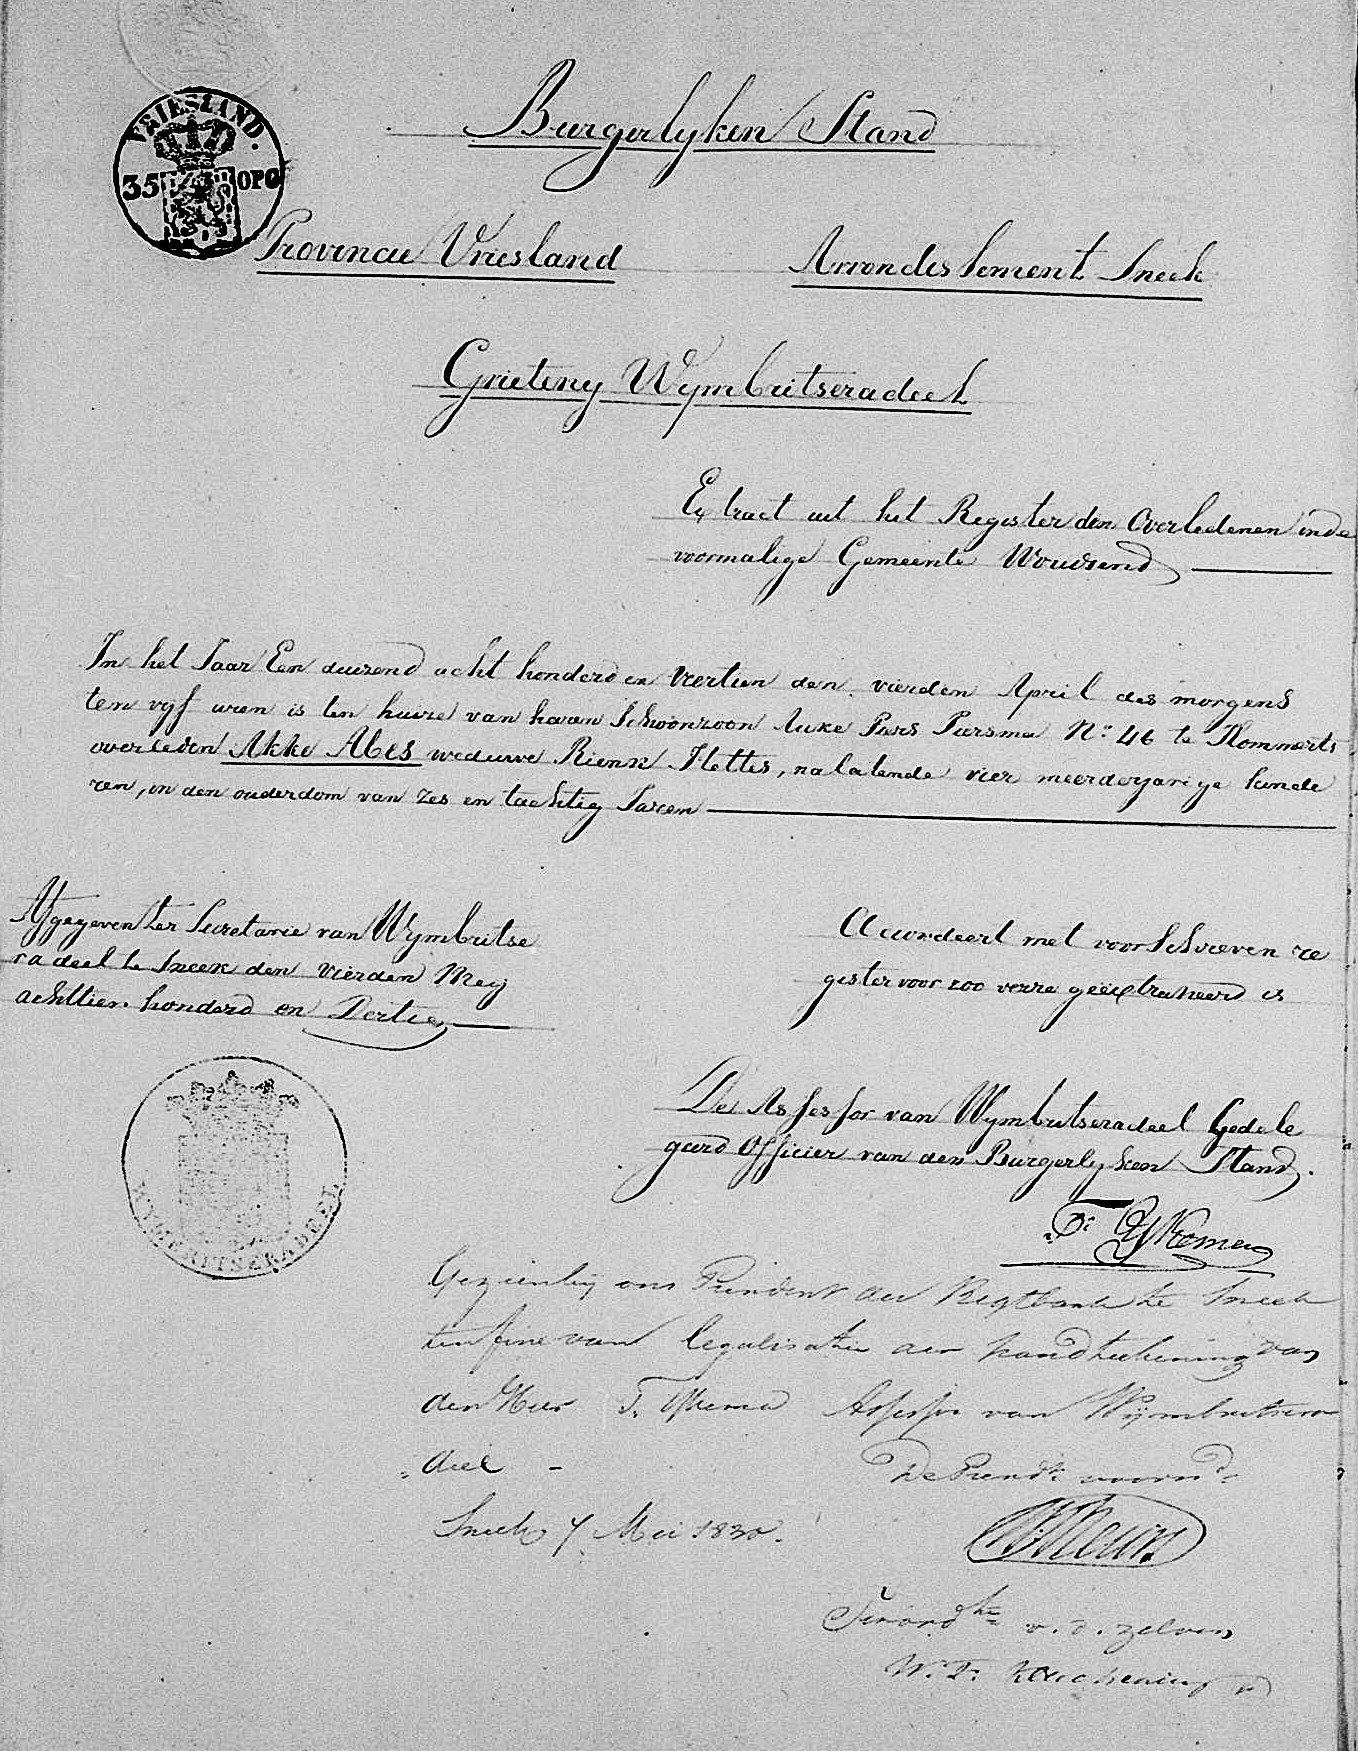 VRIESLAND.
35 OPC
Burgerlyken Stand
Provincie Vriesland
Arrondissement Sneek
Grieteny Wymbritseradeel
Extract uit het Register der Overledenen in de
voormalige Gemeente Woudsend
In het Jaar Een duizend acht honderd en veertien den vierden April des morgens
ten vyf uren is ten huize van haren Schoonzoon Auke Piers Piersma No. 46 te Hommerts
overleden Akke Abes weduwe Rienk Hettes, nalatende vier meerderjarige kinde
ren, in den ouderdom van zes en tachtig Jaren
Afgegeven ter Secretarie van Wymbritse
radeel te Sneek den vierden Mey
achttien honderd en Dertien
Accordeert met voorschreven re
gister voor zoo verre geëxtraheerd is
De Assessor van Wymbritseradeel Gedele
geerd Officier van den Burgerlyken Stand.
WYMBRITSERADEEL
Gezien by ons Presindent der Regtbank te Sneek
ten fine van legalisatie der handteekening van
den Heer T. Assessor van Wymbritsera
deel
De Presidt. voornd.
Sneek 7 Mei 1830.
v. d. zelven